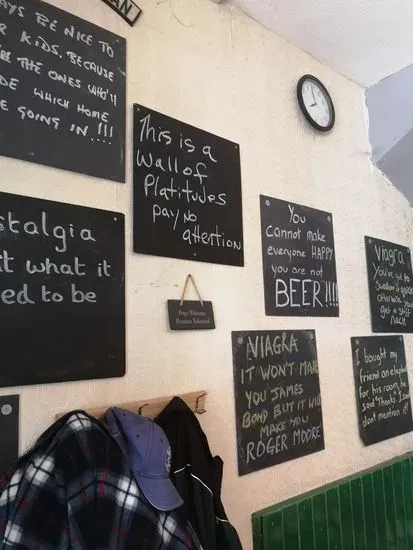 AN
AYS BE NICE TO
R KIDS, BECAUSE
'RE THE ONES WHO'LL
DE WHICH HOME
E GOING IN!!!
This is a
Wall of
Platitudes
pay no
attention
stalgia
t what it
ed to be
Dogs Welcome
Humans Tolerated
You
cannot make
everyone HAPPY
you are not
BEER!!!!
VIAGRA
IT WON'T MAKE
YOU JAMES
BOND BUT IT WILL
MAKE YOU
ROGER MOORE
Viagra
You've got to
Swallow it
otherwise you
get a stiff
neck
I bought my
friend an elephant
for his room, he
said "Thanks" I said
dont mention it!